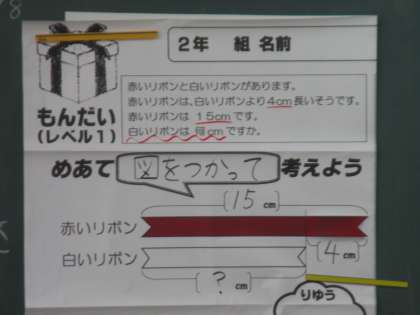 2年 組 名前
赤いリボンと白いリボンがあります。
赤いリボンは、白いリボンより4cm長いそうです。
赤いリボンは 15cmです。
白いリボンは 何cmですか。
もんだい
(レベル1)
めあて 図をつかって 考えよう
(15 cm)
赤いリボン
(4 cm)
白いリボン
(? cm)
りゆう